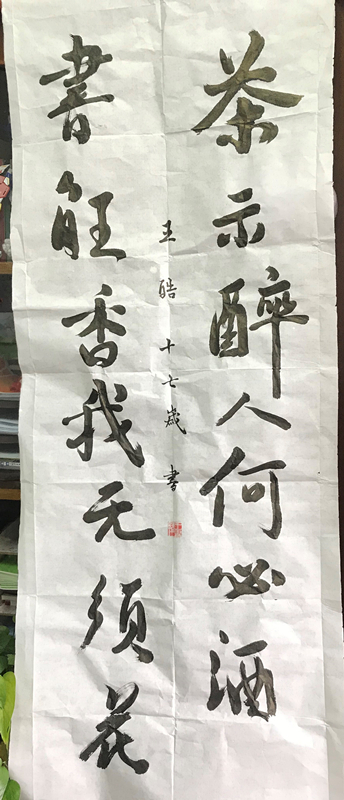 茶亦醉人何必酒
書能香我无須花
王皓十七歲書